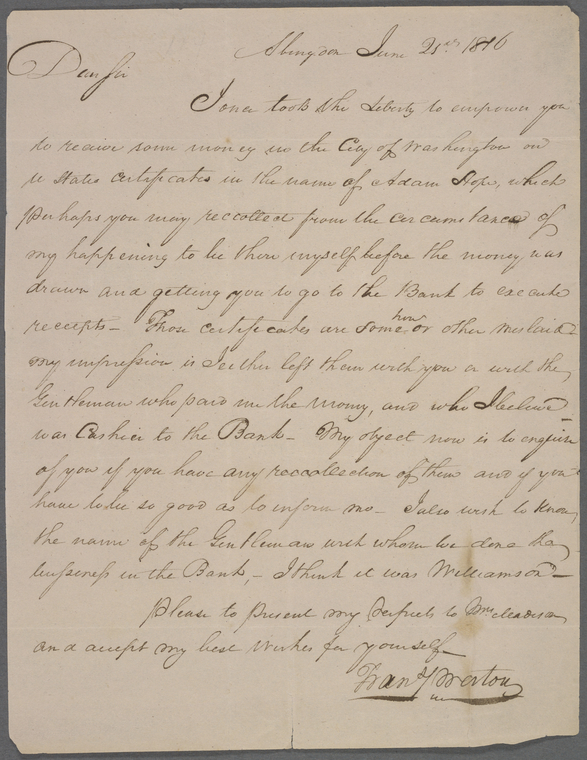 Abingdon June 21st 1816
Dear Sir
I once took the Liberty to empower you
to receive some money in the City of Washington on
U States Certificates in the name of Adam Hope, which
perhaps you may reccollect from the circumstance of
my happening to be there myself before the money was
drawn and getting you to go to the Bank to execute
receipts – Those certificates are some how or other mislaid
my impression is I either left them with you or with the
Gentleman who paid me the money, and who I believe
was Cashier to the Bank – My object now is to enquire
of you if you have any reccollection of them and if you
have to be so good as to inform me – I also wish to know
the name of the Gentleman with whom we done the
bussiness in the Bank, – I think it was Williamson –
Please to present my Respects to Mrs Madison
and accept my best wishes for yourself –
Frans Preston